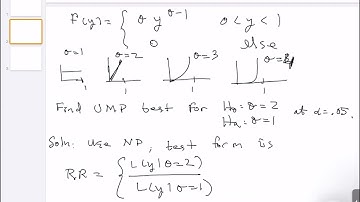 f(y) = { θ y^(θ-1) 0 < y < 1
0 else
θ=1 θ=2 θ=3
1 1 1 1
Find UMP best for H₀: θ = 2 at α = .05.
Hₐ: θ = 1
Soln: Use NP, test form is
R.R = { L(y|θ=2)
L(y|θ=1)